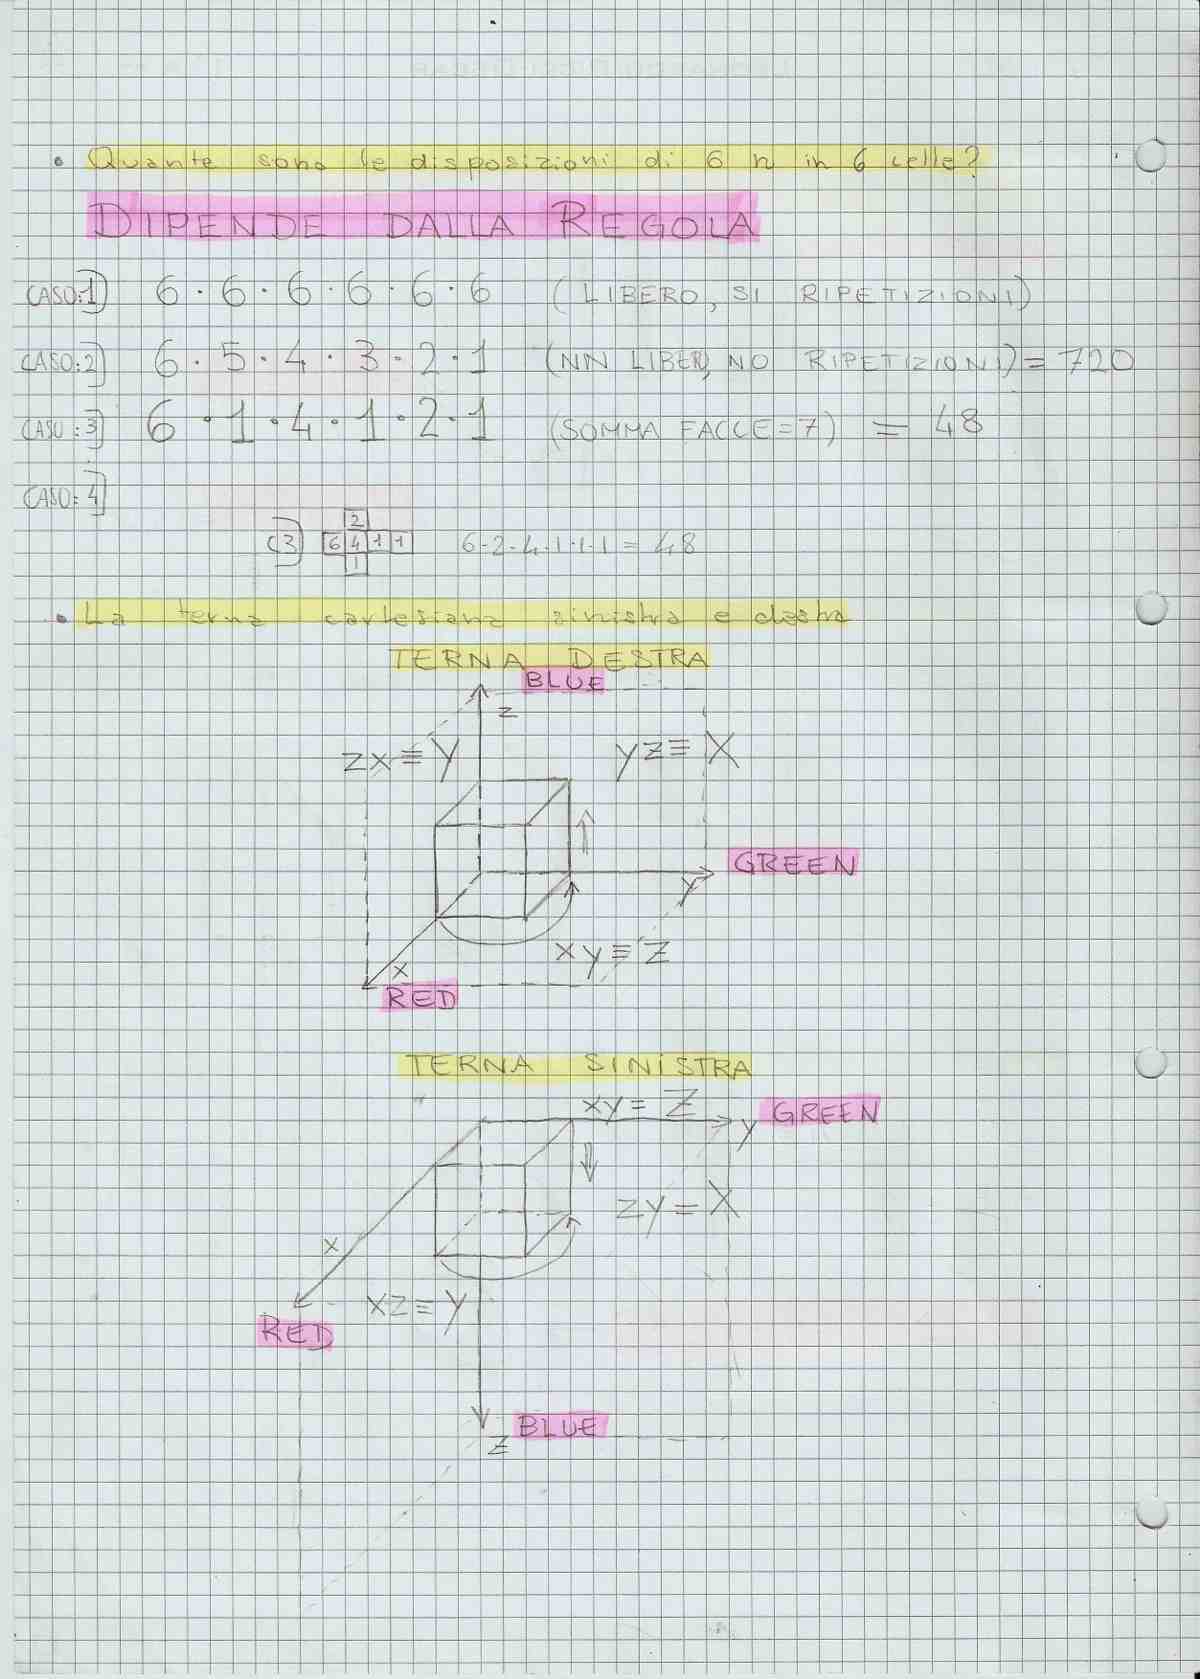 • Quante sono le disposizioni di 6 n in 6 celle?
DIPENDE DALLA REGOLA
CASO:1] 6 · 6 · 6 · 6 · 6 · 6 (LIBERO, SI RIPETIZIONI)
CASO:2] 6 · 5 · 4 · 3 · 2 · 1 (NN LIBER, NO RIPETIZIONI) = 720
CASO:3] 6 · 1 · 4 · 1 · 2 · 1 (SOMMA FACCE=7) = 48
CASO:4]
2
C3] 6 4 1 1 6·2·4·1·1·1 = 48
1
• La terna cartesiana sinistra e destra
TERNA DESTRA
BLUE
z
zx ≡ y yz ≡ X
GREEN
y
xy ≡ Z
x
RED
TERNA SINISTRA
xy = Z GREEN
y
zy = X
x
xz = y
RED
BLUE
z